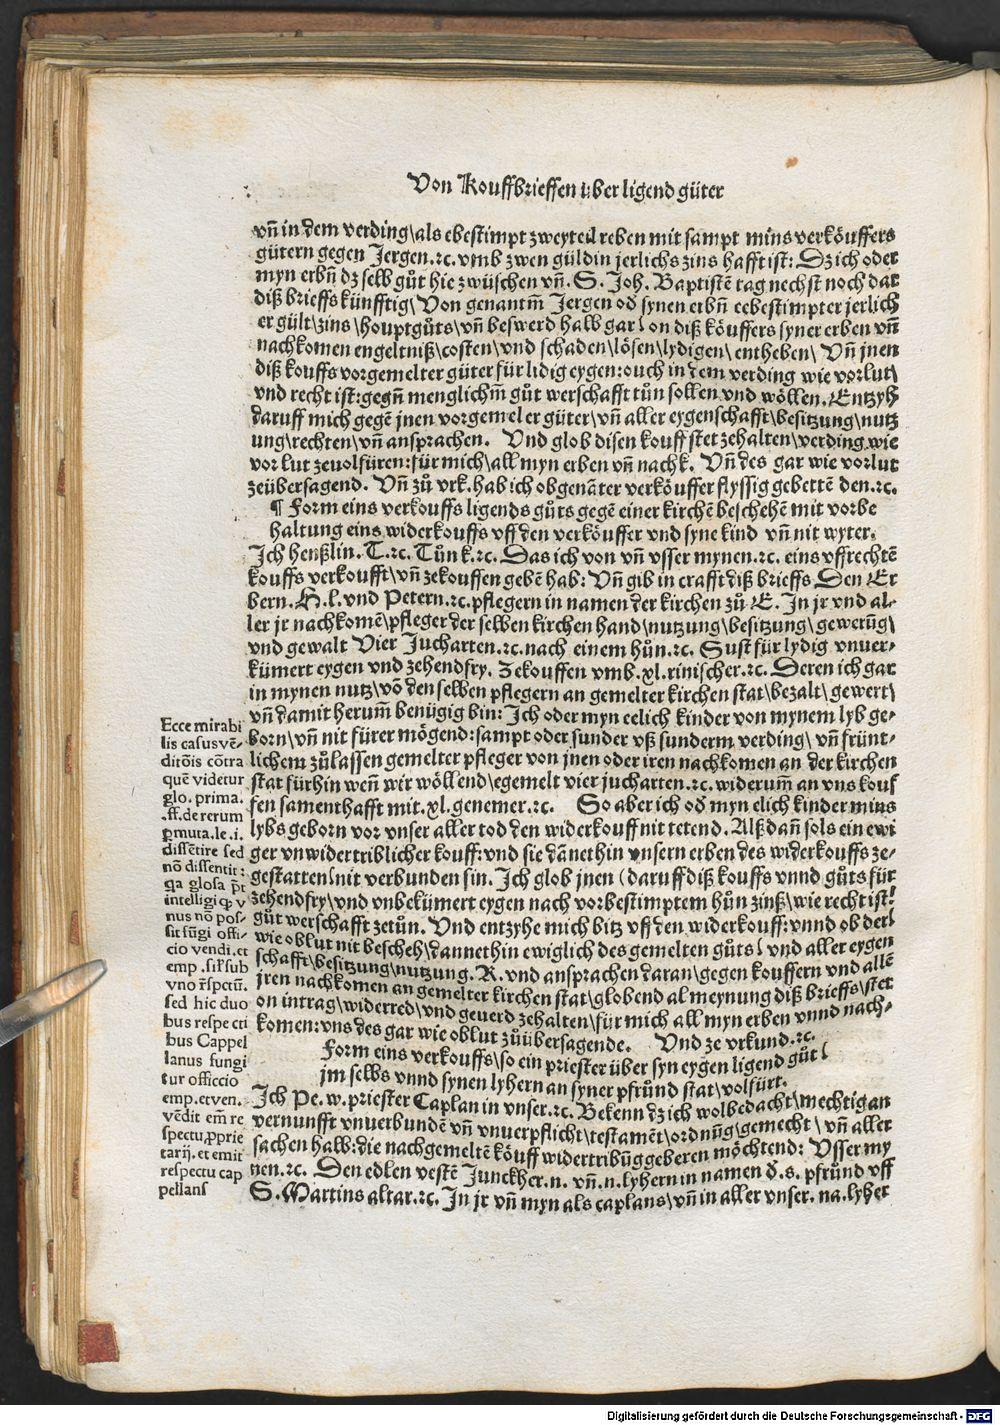 Von Kouffbrieffen über ligend güter
vñ in dem verding\als ebestimpt zweyteil reben mit sampt mins verköuffers
gütern gegen Jergen.⁊c. vmb zwen güldin jerlichs zins hafft ist: Dz ich oder
myn erbñ dz selb gůt hie zwüschen vñ. S. Joh. Baptistē tag nechst noch dat
diß brieffs künfftig\ Von genantm̄ Jergen od̕ synen erbñ eebestimpter jerlich
er gült\zins\houptgůts\vñ beswerd halb gar\ on diß köuffers syner erben vñ
nachkomen engeltniß\costen\vnd schaden\lösen\lydigen\ entheben\ Vñ jnen
diß kouffs vorgemelter güter für lidig eygen: ouch in dem verding wie vorlut\
vnd recht ist: gegñ menglichm̄ gůt werschafft tůn sollen vnd wöllen. Entzyh
daruff mich gegē jnen vorgemel er güter\vñ aller eygenschafft\besitzung\nutz
ung\rechten\vñ ansprachen. Vnd glob disen kouff stet zehalten\verding wie
vor lut zeuolfüren: für mich\all myn erben vñ nachk. Vñ des gar wie vorlut
zeübersagend. Vñ zů vrk. hab ich obgenāter verköuffer flyssig gebettē den.⁊c.
¶ Form eins verkouffs ligends gůts gegē einer kirchē beschehē mit vorbe
haltung eins widerkouffs vff den verköuffer vnd syne kind vñ nit wyter.
Ich henßlin. T.⁊c. Tůn k.⁊c. Das ich von vñ vsser mynen.⁊c. eins vffrechtē
kouffs verkoufft\vñ zekouffen gebē hab: Vñ gib in crafft diß brieffs Den Er
bern. H. l. vnd Petern.⁊c. pflegern in namen der kirchen zů E. In jr vnd al-
ler jr nachkomē\pfleger der selben kirchen hand\nutzung\besitzung\gewerūg\
vnd gewalt Vier Jucharten.⁊c. nach einem hůn.⁊c. Sust für lydig vnuer-
kümert eygen vnd zehendfry. Zekouffen vmb. xl. rinischer.⁊c. Deren ich gar
in mynen nutz\vō den selben pflegern an gemelter kirchen stat\bezalt\gewert\
vñ damit herum̄ benügig bin: Ich oder myn eelich kinder von mynem lyb ge-
born\vñ nit fürer mögend: sampt oder sunder vß sunderm verding\ vñ frünt-
lichem zůlassen gemelter pfleger von jnen oder iren nachkomen an der kirchen
stat fürhin weñ wir wöllend\egemelt vier jucharten.⁊c. widerum̄ an vns kouf
fen samenthafft mit. xl. genemer.⁊c. So aber ich od̕ myn elich kinder mins
lybs geborn vor vnser aller tod den widerkouff nit tetend. Alß dañ sols ein ewi
ger vnwidertriblicher kouff: vnd sie dānethin vnsern erben des widerkouffs ze-
gestatten\nit verbunden sin. Ich glob jnen (daruff diß kouffs vnnd gůts für
zehendfry\vnd vnbekümert eygen nach vorbestimptem hůn zinß\wie recht ist\
gůt werschafft zetůn. Vnd entzyhe mich bitz vff den widerkouff: vnnd ob der\
wie oblut nit bescheh\dannethin ewiglich des gemelten gůts\ vnd aller eygen
schafft\besitzung\nutzung. R. vnd ansprachen daran\gegen kouffern vnd allē
jren nachkomen an gemelter kirchen stat\globend al meynung diß brieffs\stet
on intrag\widerred\vnd geuerd zehalten\für mich all myn erben vnnd nach-
komen: vns des gar wie oblut zůübersagende. Vnd ze vrkund.⁊c.
Form eins verkouffs\so ein priester über syn eygen ligend gůt\
jm selbs vnnd synen lyhern an syner pfrůnd stat\volfürt.
Ich Pe. w. priester Caplan in vnser.⁊c. Bekenn dz ich wolbedacht\mechtig an
vernunfft vnuerbundē vñ vnuerpflicht\testamēt\ordnūg\gemecht\ vñ aller
sachen halb: die nachgemeltē köuff widertribūggeberen möchtend: Vsser my
nen.⁊c. Den edlen vestē Junckher. n. vñ. n. lyhern in namen d̕. s. pfrůnd vff
S. Martins altar.⁊c. In jr vñ myn als caplans\vñ in aller vnser. na. lyher
Ecce mirabi
lis casus vē-
ditōis cōtra
quē videtur
glo. prima.
.ff. de rerum
ꝑmuta. le. i.
dissētire sed
nō dissentit:
qa glosa p̄t
intelligi qꝫ v
nus nō pos-
sit fūgi offi-
cio vendi. et
emp. sil̕ sub
vno r̄spectu.
sed hic duo
bus respecti
bus Cappel
lanus fungi
tur officcio
emp. et ven.
vēdit em̄ re
spectu ꝓprie
tarij. et emit
respectu cap
pellani
Digitalisierung gefördert durch die Deutsche Forschungsgemeinschaft - DFG